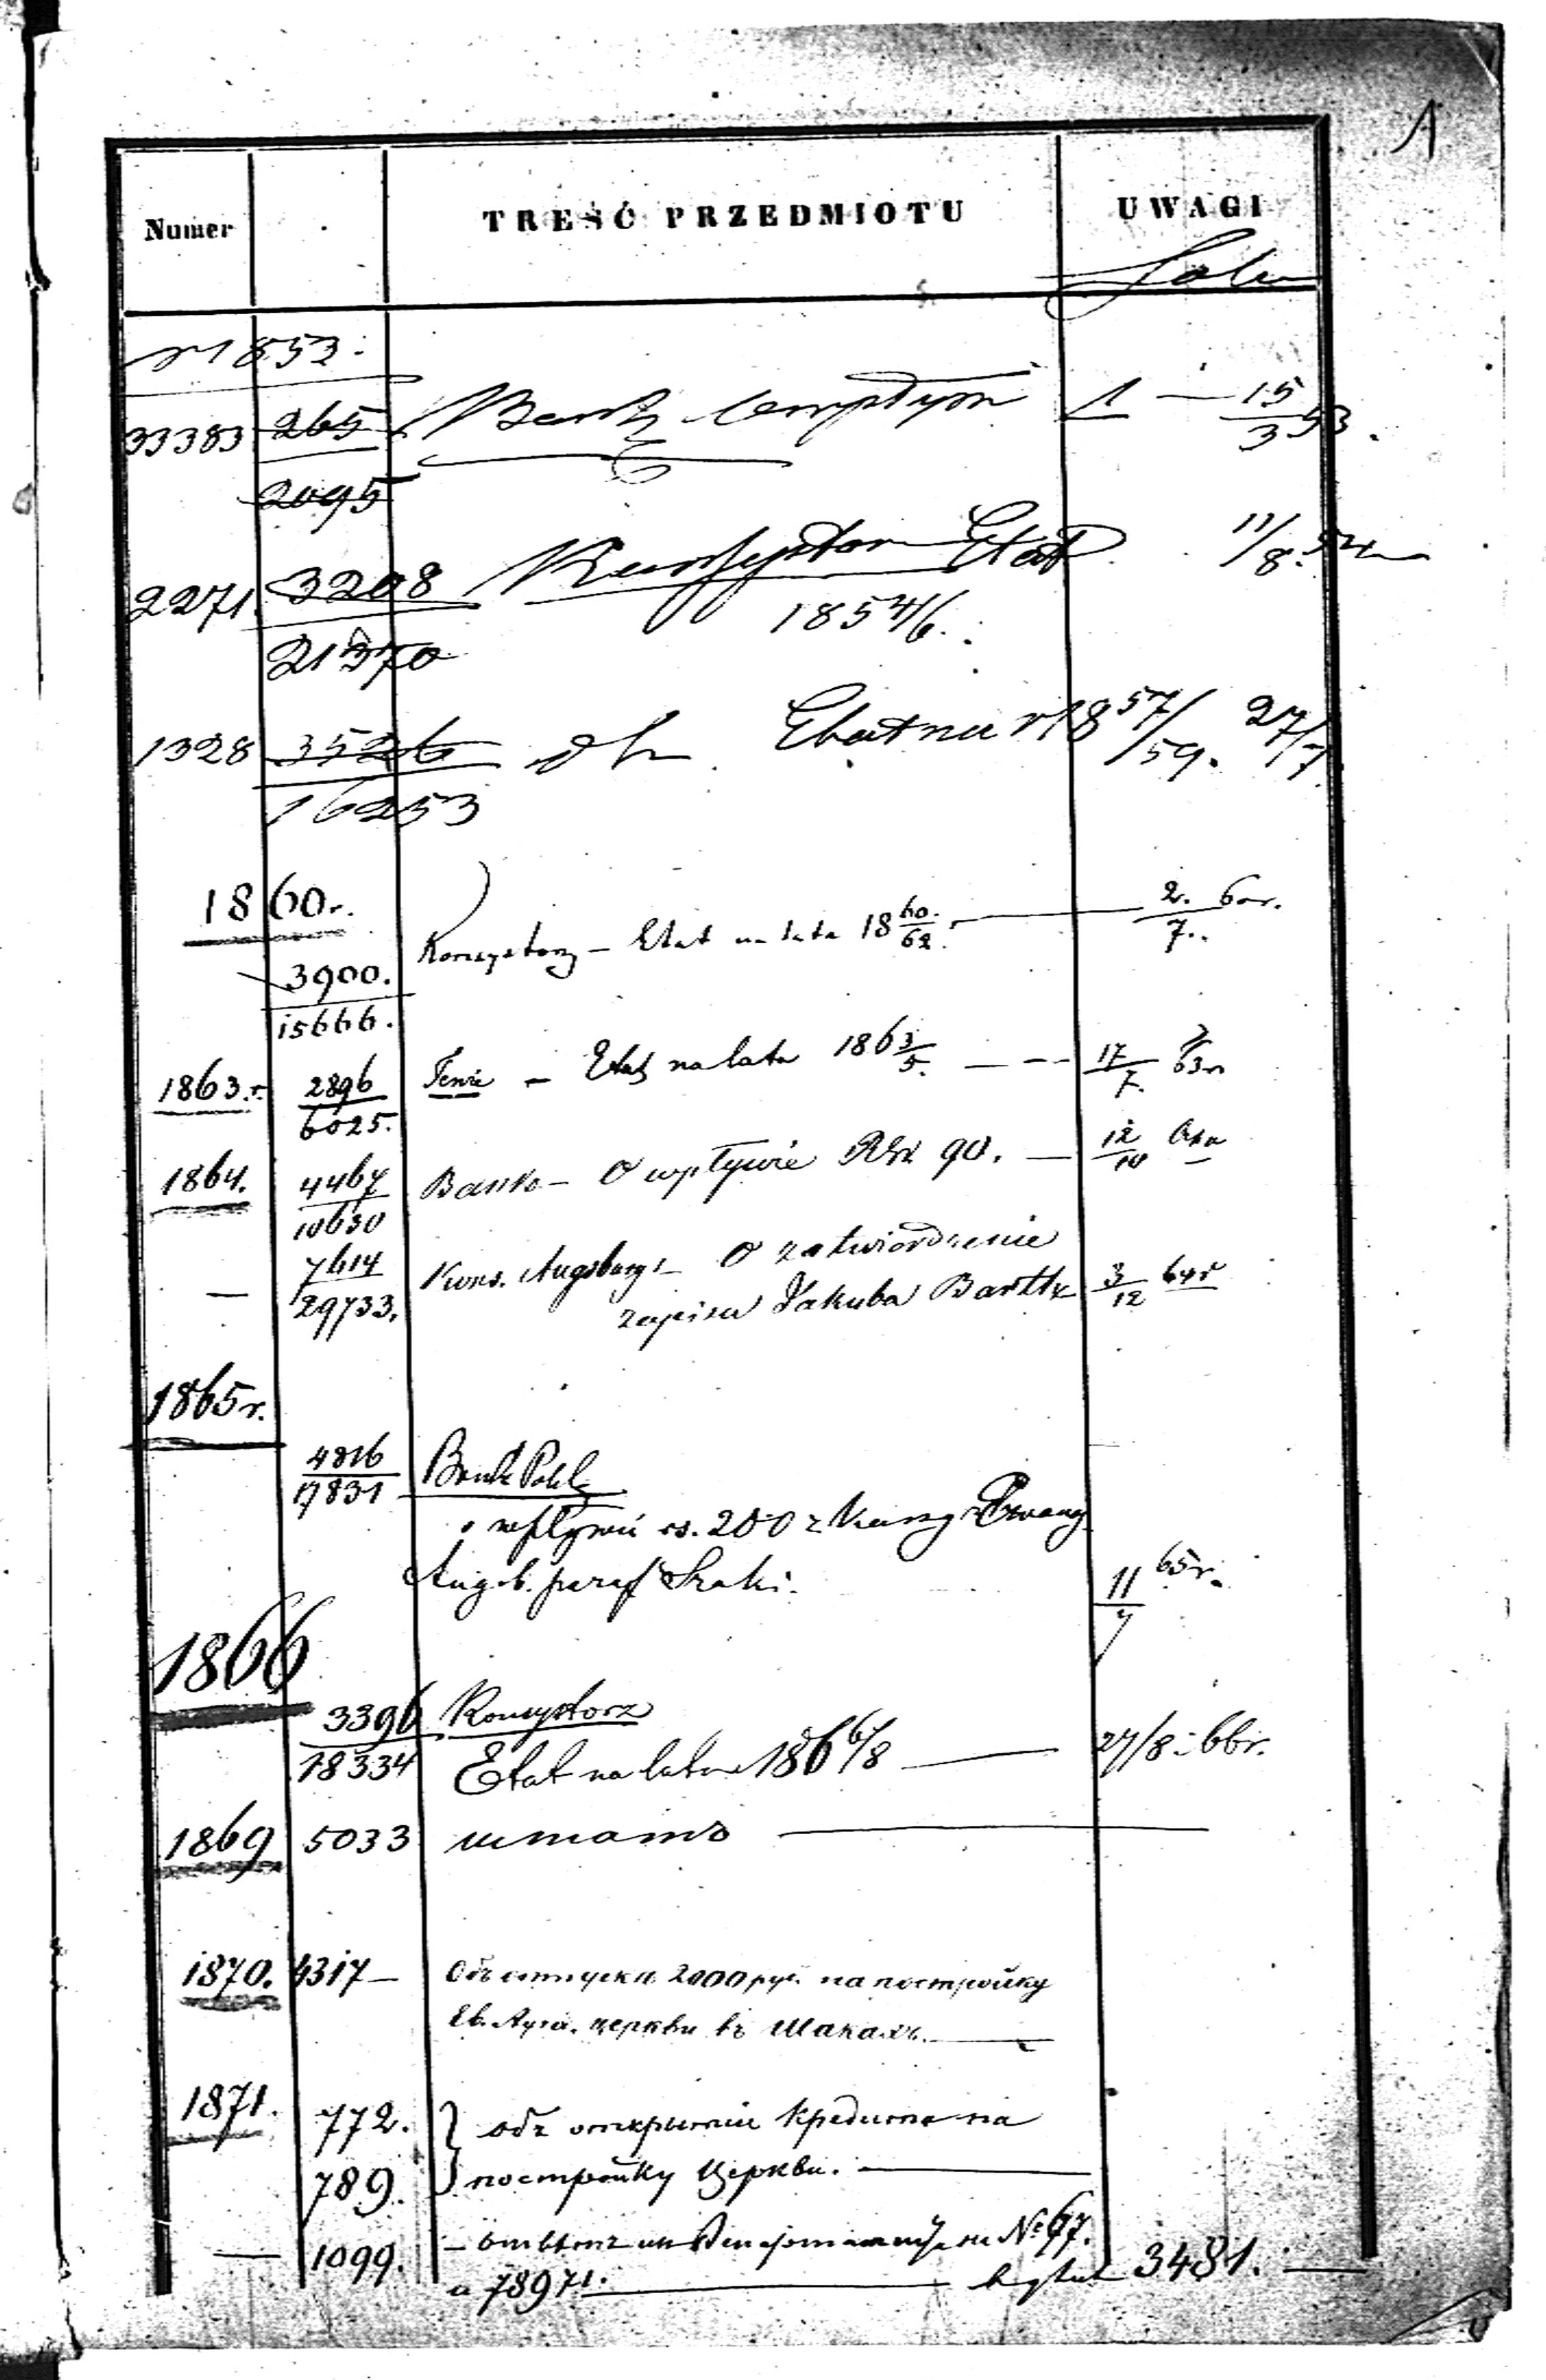 1
Numer TREŚĆ PRZEDMIOTU UWAGI
r 1853.
33383 265 Bank 1 — 15/3 53.
2095
2271. 3208 Etat 11/8. 54
21370 1854/6.
1328 3526 Etat na r 1857/59. 27/7
16253
1860r.
Konsystorz — Etat na lata 18 60/62. — 2./7. 60r.
3900.
15666.
1863.r. 2896 Tenże — Etat na lata 186 3/5. — 17/7. 63r
6025.
1864. 4467 Bank — O wpływie RSr 90. — 12/10 64r
10630
— 7614 Kons. Augsburg — O zatwierdzenie
29733. zapisu Jakuba 3/12 64r
1865r.
4816 Bank Polski
17831
o wpływie rs. 200 z kassy Ewang
Augsb. paraf Szaki.
11/7 65r.
1866
3396 Konsystorz
18334 Etat na lata 186 6/8 — 27/8 66r.
1869 5033 штатъ —
1870. 4317 — Объ отпуске 2000 руб. на постройку
Ев. Ауга. церкви въ Шакахъ. —
1871. 772. } объ открытіи кредита на
789. } постройку церкви. —
— 1099. — ответъ на № 67.
и 78971. — 3481. —